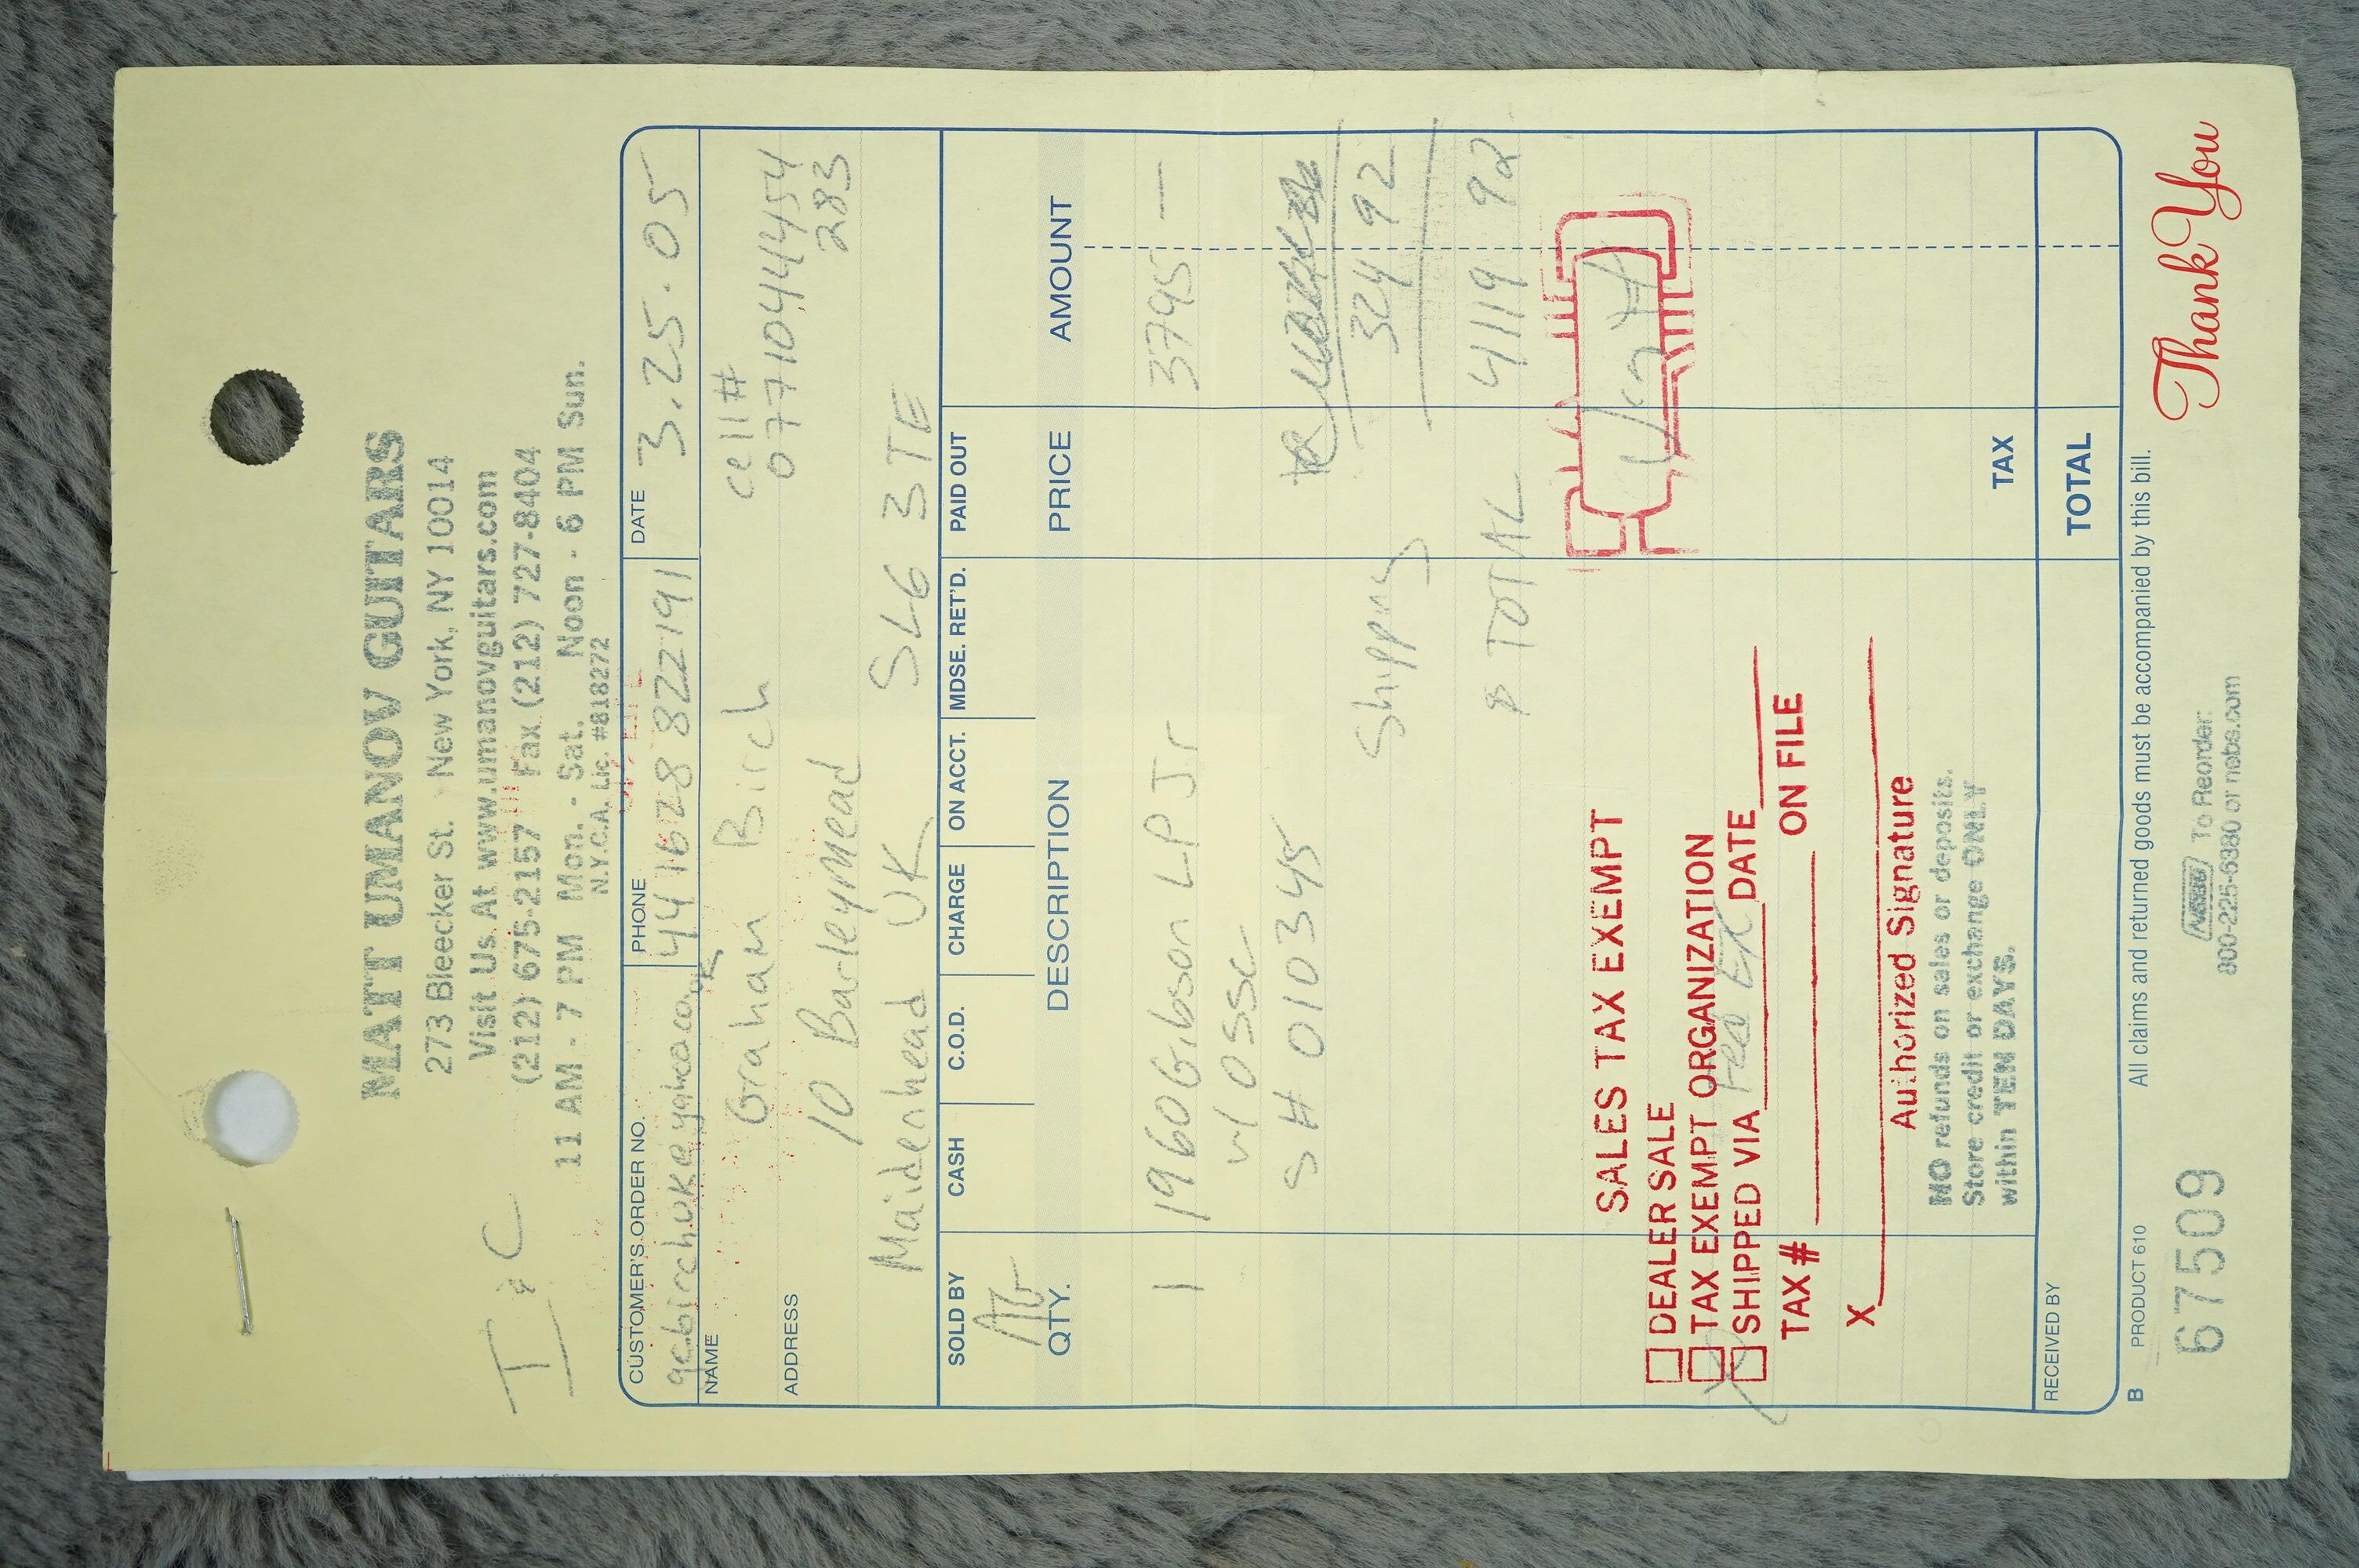 MATT UMANOV GUITARS
273 Bleecker St. New York, NY 10014
Visit Us At www.umanovguitars.com
(212) 675-2157 Fax (212) 727-8404
11 AM - 7 PM Mon. - Sat. Noon - 6 PM Sun.
N.Y.C.A. Lic. #818272
CUSTOMER'S ORDER NO. PHONE 44 1628 822191 DATE 3.25.05
NAME Graham Birch cell #
07710444454
283
ADDRESS 10 Barley Mead
Maidenhead UK SL6 3TE
SOLD BY CASH C.O.D. CHARGE ON ACCT. MDSE. RET'D. PAID OUT
QTY. DESCRIPTION PRICE AMOUNT
1 1960 Gibson LP Jr 3795 —
w/ OSSC
S# 010345
Shipping 324 92
TOTAL 4119 92
SALES TAX EXEMPT
DEALER SALE
TAX EXEMPT ORGANIZATION
SHIPPED VIA Fed EX DATE
TAX # ON FILE
X
Authorized Signature
NO refunds on sales or deposits.
Store credit or exchange ONLY
within TEN DAYS.
TAX
RECEIVED BY TOTAL
B PRODUCT 610 All claims and returned goods must be accompanied by this bill.
67509 NEBS To Reorder:
800-225-6380 or nebs.com
Thank You